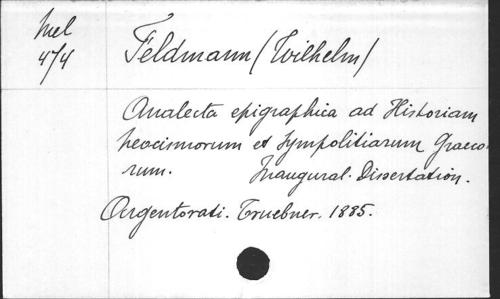 Mel
474
Feldmann (Wilhelm)
Analecta epigraphica ad Historiam
synoecismorum et sympolitiarum Graeco-
rum. Inaugural. Dissertation.
Argentorati. Truebner. 1885.